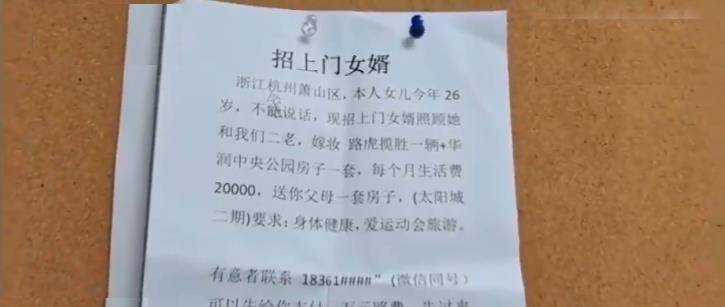 招上门女婿
浙江杭州萧山区，本人女儿今年 26
岁，不能说话，现招上门女婿照顾她
和我们二老，嫁妆 路虎揽胜一辆+华
润中央公园房子一套，每个月生活费
20000，送你父母一套房子，(太阳城
二期)要求：身体健康，爱运动会旅游。
有意者联系 18361####"(微信同号)
可以先给你支付一万元路费，先过来